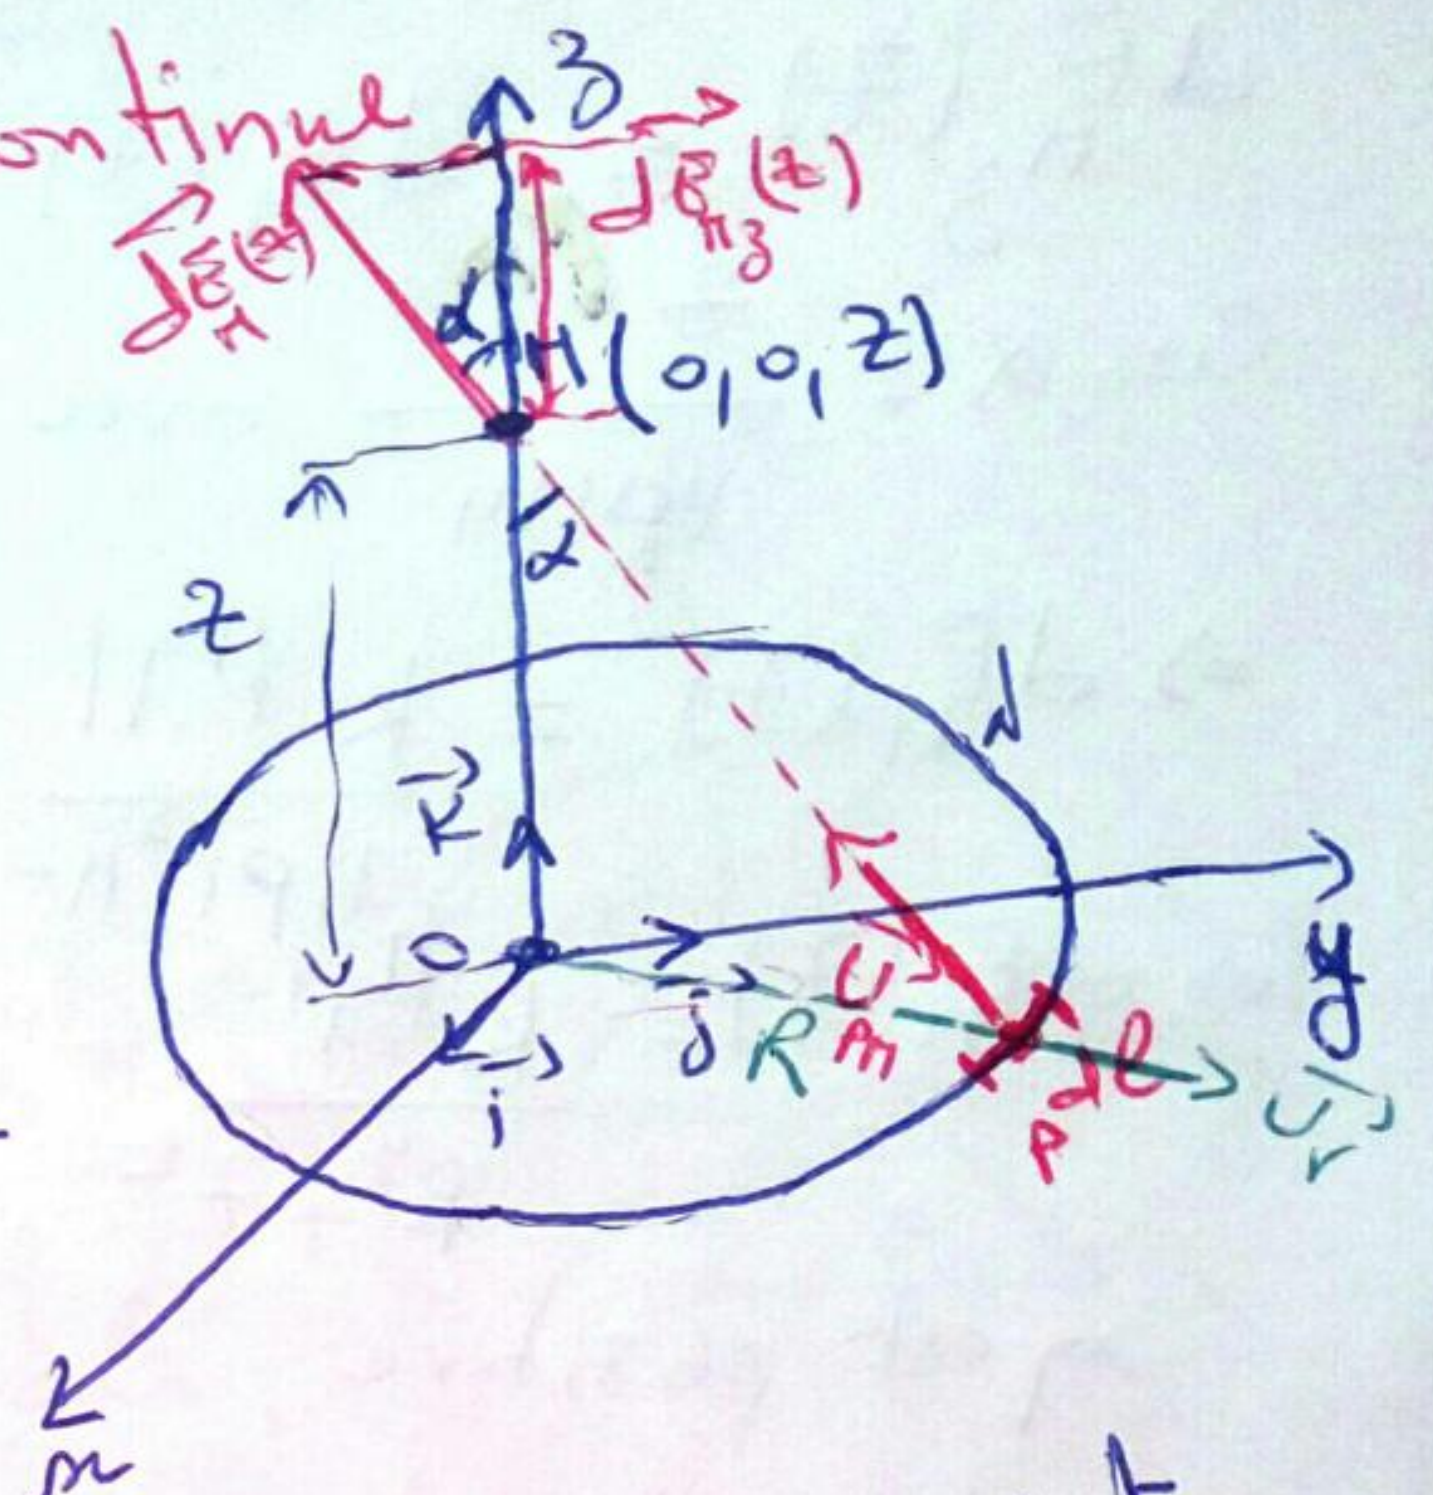 ontinue
z
dE_M(z)
dE_Mz(z)
α
M(0,0,z)
α
z
λ
k
O
j
y
R
U_PM
dl
P
U_r
i
x